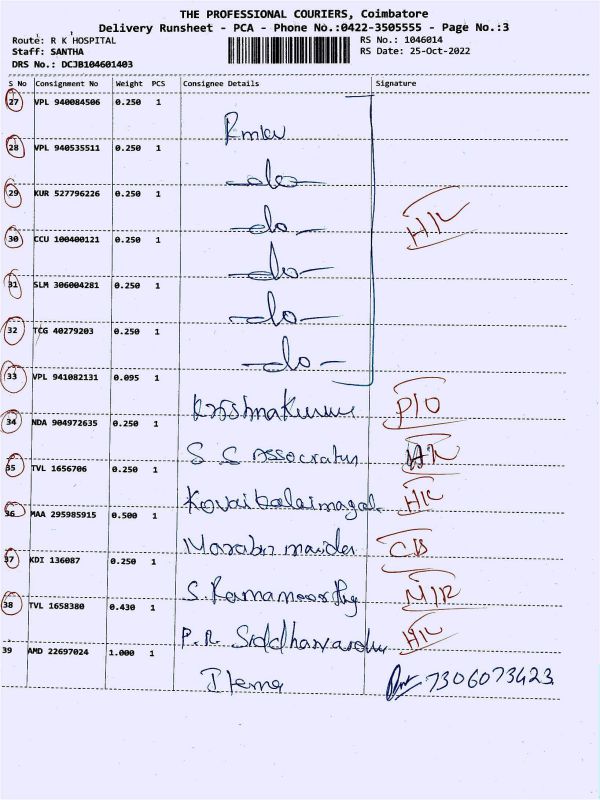 THE PROFESSIONAL COURIERS, Coimbatore
Delivery Runsheet - PCA - Phone No.:0422-3505555 - Page No.:3
Route: R K HOSPITAL RS No.: 1046014
Staff: SANTHA RS Date: 25-Oct-2022
DRS No.: DCJB104601403
S No Consignment No Weight PCS Consignee Details Signature
27 VPL 940084506 0.250 1
28 VPL 940535511 0.250 1
-do-
29 KUR 527796226 0.250 1
-do-
30 CCU 100400121 0.250 1
-do-
31 SLM 306004281 0.250 1
-do-
32 TCG 40279203 0.250 1
-do-
33 VPL 941082131 0.095 1
P10
34 NDA 904972635 0.250 1
S S Associates
35 TVL 1656706 0.250 1
Kovaibalaimagal
36 MAA 295985915 0.500 1
37 KDI 136087 0.250 1
S. Ramamoorthy
38 TVL 1658380 0.430 1
P.R. Siddhavardhu
39 AMD 22697024 1.000 1
7306073423